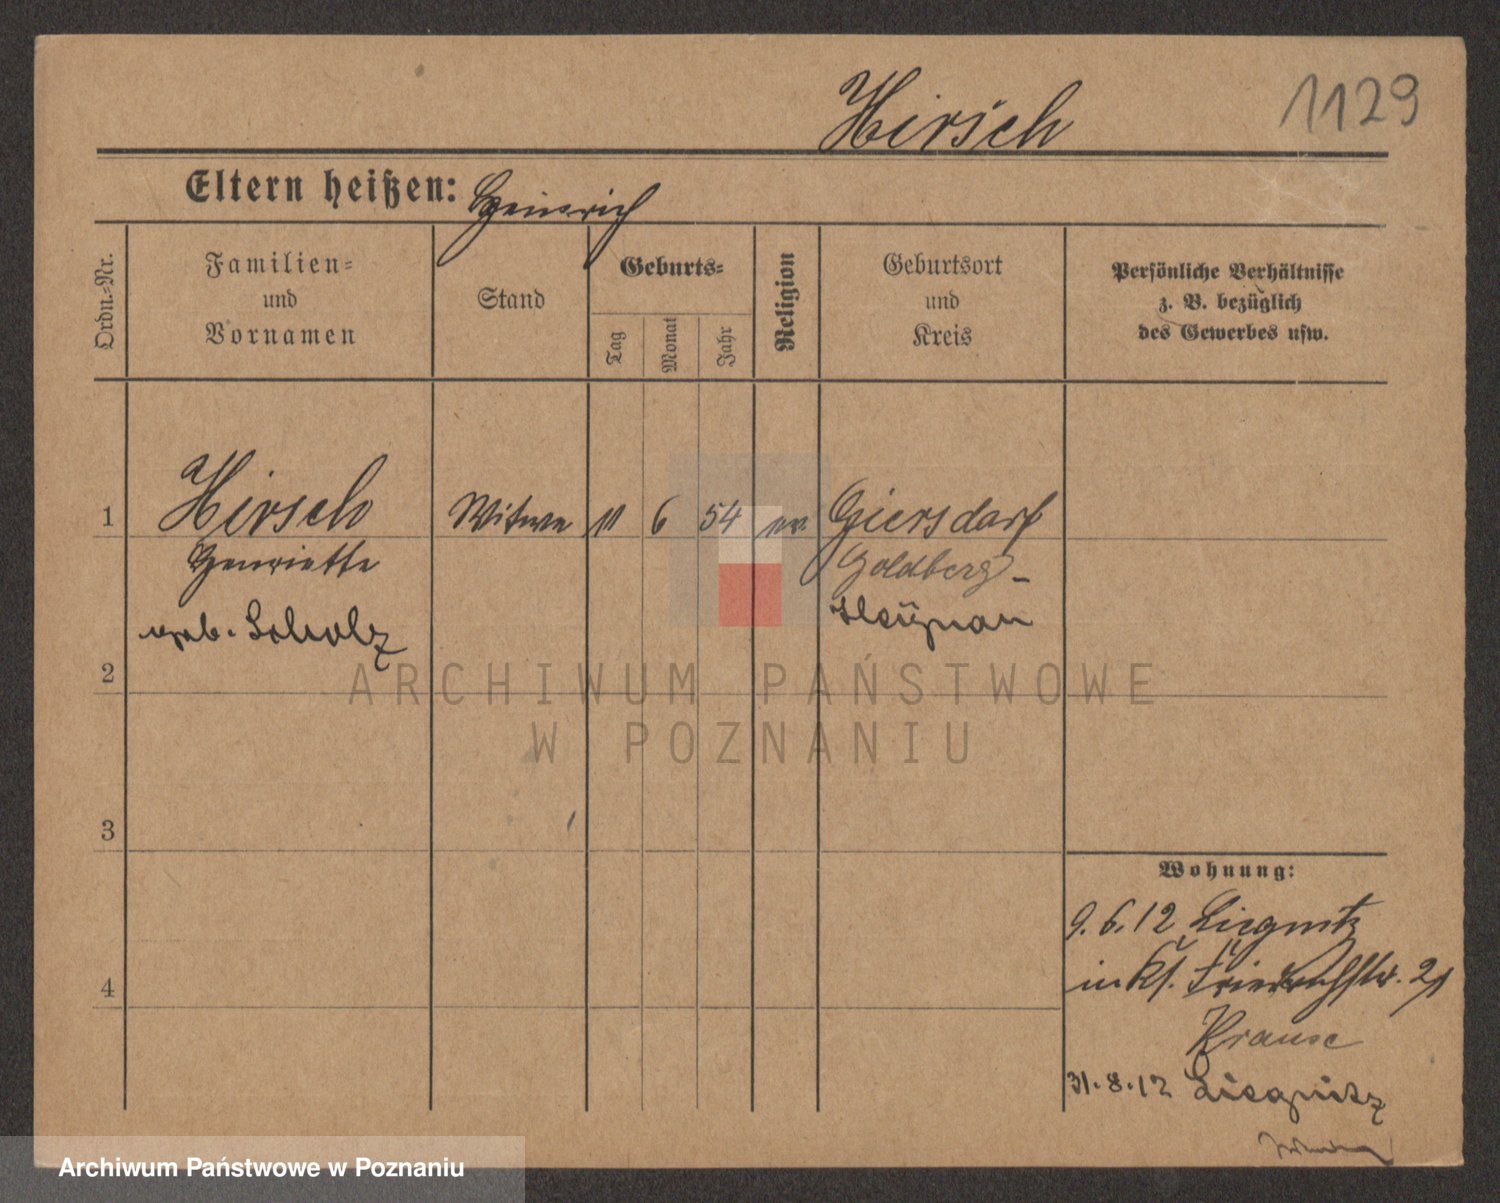 Hirsch
1129
Eltern heißen: Heinrich
Ordn.-Nr.
Familien-
und
Vornamen
Stand
Geburts-
Tag
Monat
Jahr
Religion
Geburtsort
und
Kreis
Persönliche Verhältnisse
z. B. bezüglich
des Gewerbes usw.
1
Hirsch Witwe 11 6 54 ev. Giersdorf
Henriette Goldberg-
geb. Scholz Haynau
2
ARCHIWUM PAŃSTWOWE
W POZNANIU
3
Wohnung:
9.6.12 Liegnitz
Friedrichstr. 21
4
Krause
31.8.12 Liegnitz
Archiwum Państwowe w Poznaniu